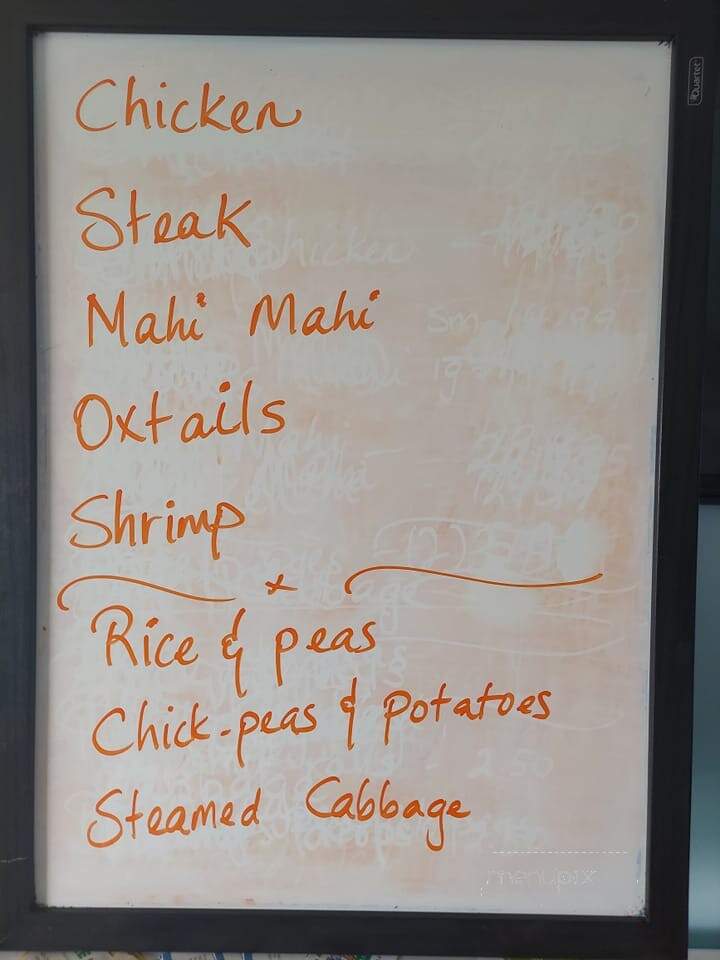 Quartet
Chicken
Steak
Mahi Mahi
Oxtails
Shrimp
Rice & peas
Chick-peas & potatoes
Steamed Cabbage
menupix